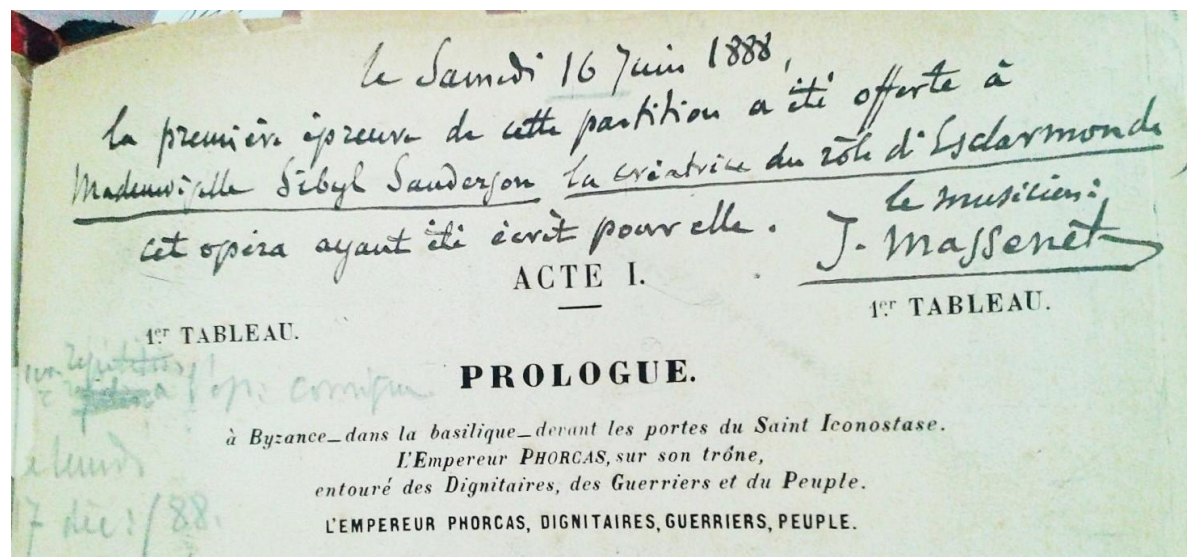 le Samedi 16 Juin 1888,
la première épreuve de cette partition a été offerte à
Mademoiselle Sibyl Sanderson la créatrice du rôle d'Esclarmonde
cet opéra ayant été écrit pour elle.
le musicien:
J. Massenet
ACTE I.
1er TABLEAU.
1er TABLEAU.
PROLOGUE.
répétition
à l'op: comique
le lundi
17 déc: / 88.
à Byzance_dans la basilique_devant les portes du Saint Iconostase.
L'Empereur PHORCAS, sur son trône,
entouré des Dignitaires, des Guerriers et du Peuple.
L'EMPEREUR PHORCAS, DIGNITAIRES, GUERRIERS, PEUPLE.